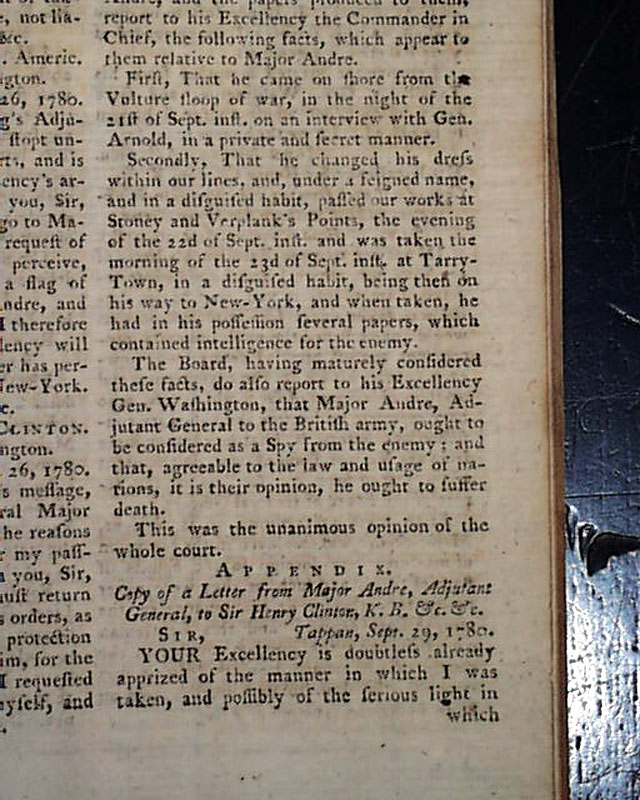 , not lia-
&c.
. Americ.
ngton.
26, 1780.
g's Adju-
ſtopt un-
rts, and is
ency's ar-
you, Sir,
go to Ma-
requeſt of
perceive,
a flag of
Andre, and
I therefore
lency will
er has per-
New-York.
c.
CLINTON.
ngton.
26, 1780.
s meſſage,
ral Major
he reaſons
r my paſſ-
a you, Sir,
muſt return
s orders, as
protection
im, for the
I requeſted
myſelf, and
Andre, and the papers produced to them,
report to his Excellency the Commander in
Chief, the following facts, which appear to
them relative to Major Andre.
Firſt, That he came on ſhore from the
Vulture ſloop of war, in the night of the
21ſt of Sept. inſt. on an interview with Gen.
Arnold, in a private and ſecret manner.
Secondly, That he changed his dreſs
within our lines, and, under a feigned name,
and in a diſguiſed habit, paſſed our works at
Stoney and Verplank's Points, the evening
of the 22d of Sept. inſt. and was taken the
morning of the 23d of Sept. inſt. at Tarry-
Town, in a diſguiſed habit, being then on
his way to New-York, and when taken, he
had in his poſſeſſion ſeveral papers, which
contained intelligence for the enemy.
The Board, having maturely conſidered
theſe facts, do alſo report to his Excellency
Gen. Waſhington, that Major Andre, Ad-
jutant General to the Britiſh army, ought to
be conſidered as a Spy from the enemy; and
that, agreeable to the law and uſage of na-
tions, it is their opinion, he ought to ſuffer
death.
This was the unanimous opinion of the
whole court.
APPENDIX.
Copy of a Letter from Major Andre, Adjutant
General, to Sir Henry Clinton, K. B. &c. &c.
SIR, Tappan, Sept. 29, 1780.
YOUR Excellency is doubtleſs already
apprized of the manner in which I was
taken, and poſſibly of the ſerious light in
which